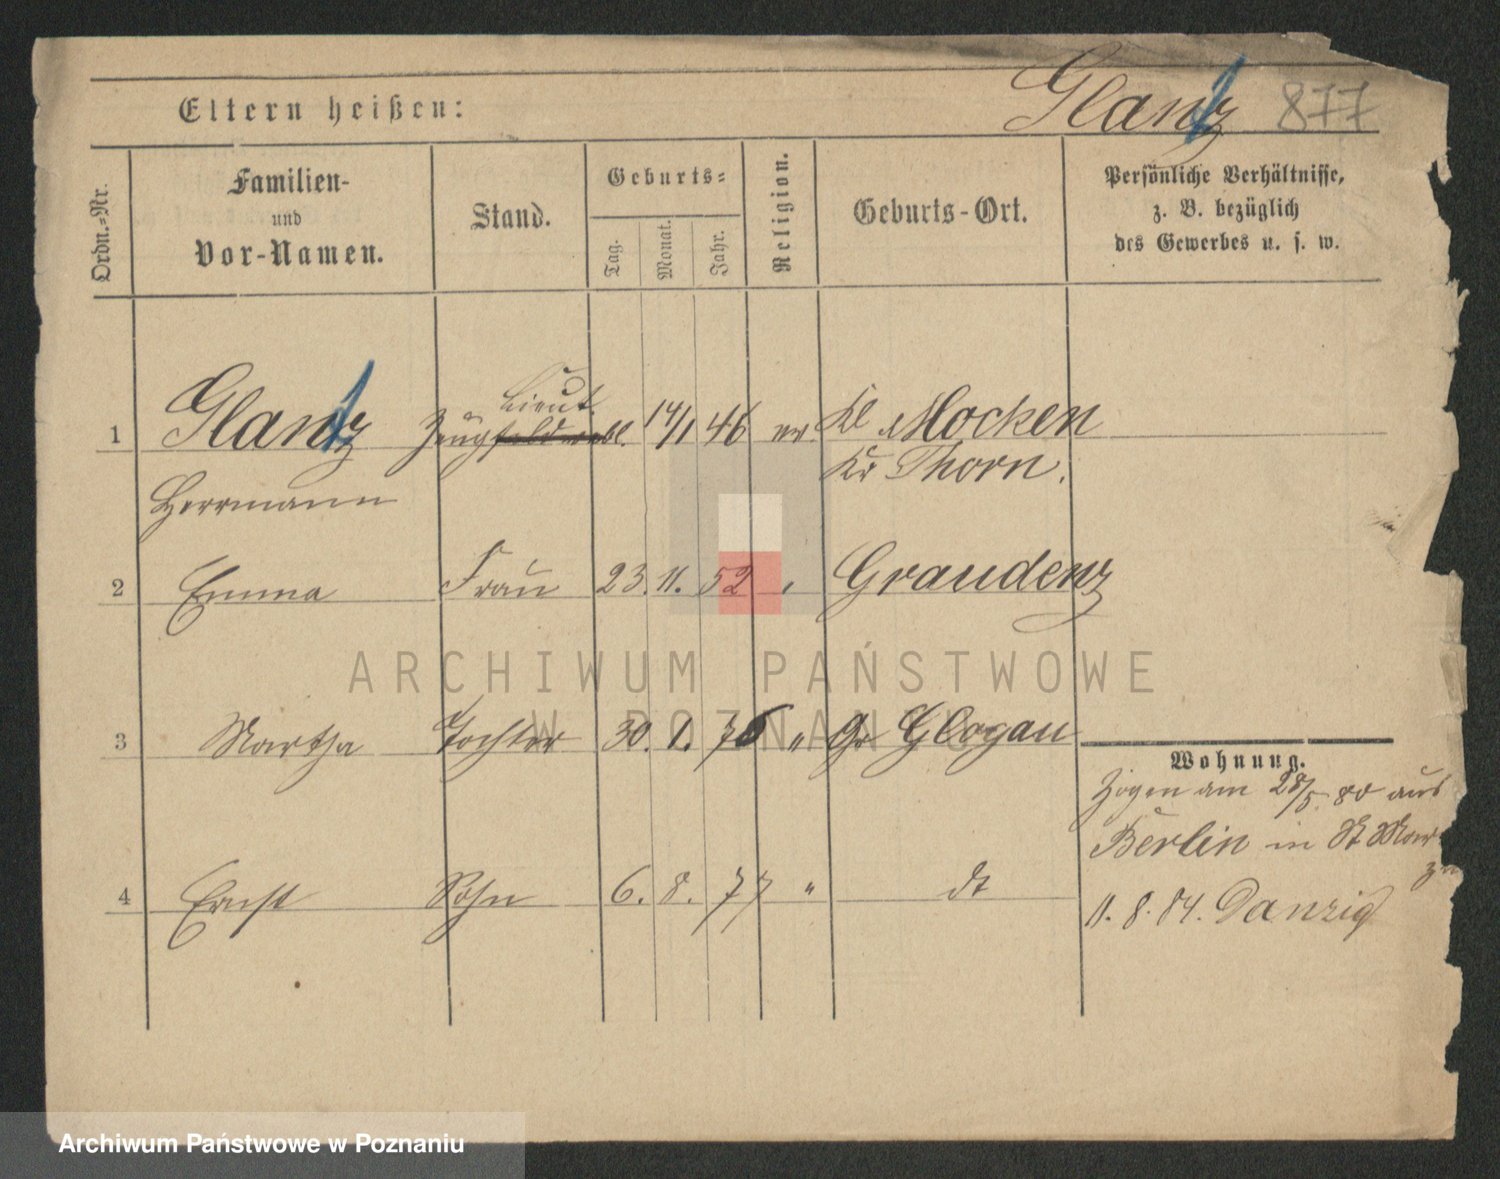 Eltern heißen:
Glantz 877
Ordn.-Nr.
Familien-
und
Vor-Namen.
Stand.
Geburts-
Tag.
Monat.
Jahr.
Religion.
Geburts-Ort.
Persönliche Verhältnisse,
z. B. bezüglich
des Gewerbes u. s. w.
Lieut.
1 Glantz Zeugfeldwebl. 14/1 46 ev Kl Mocken
Kr Thorn.
Herrmann
2 Emma Frau 23. 11. 52 " Graudenz
ARCHIWUM PAŃSTWOWE
W POZNANIU
3 Martha Tochter 30. 1. 76 " Gr Glogau
Wohnung.
Zogen am 28/5. 80 aus
Berlin in St Mar
4 Ernst Sohn 6. 8. 77 " dt
11. 8. 84. Danzig
Archiwum Państwowe w Poznaniu